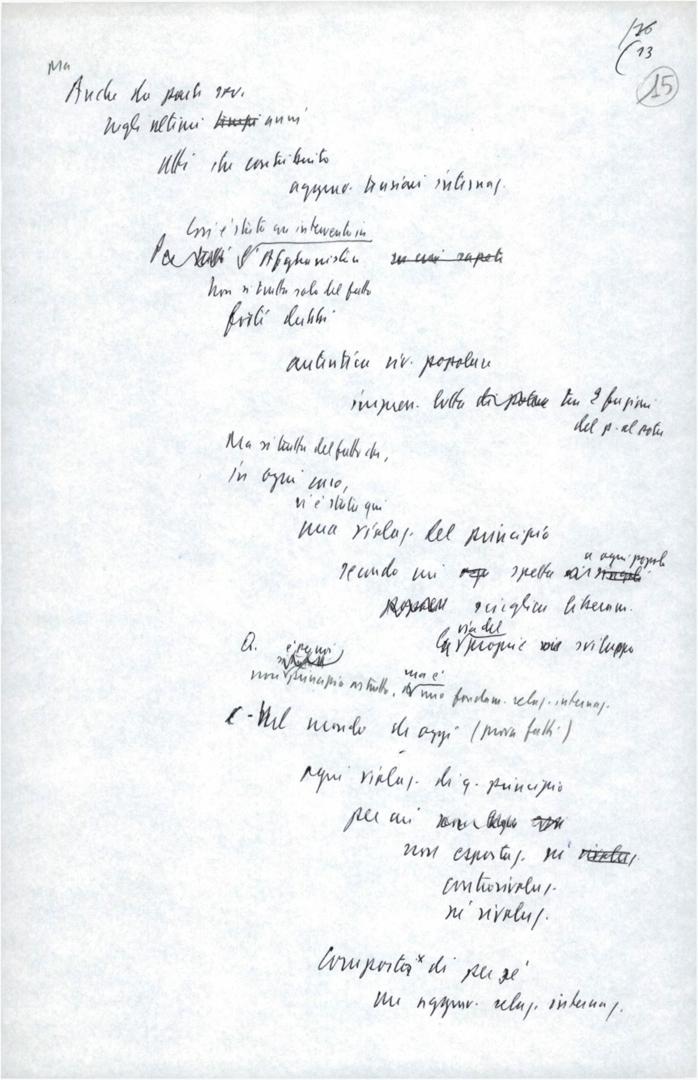 176
13
15
Ma
Anche da parte sov.
negli ultimi tempi anni
atti che contribuito
aggrav. tensioni internaz.
Così è stato un intervento in
Afghanistan
Non si tratta solo del fatto
forti dubbi
autentica riv. popolare
lotta tra 2 frazioni
del p. al potere
Ma si tratta del fatto che,
in ogni caso,
vi è stata qui
una violaz. del principio
a ogni popolo
secondo cui spetta
scegliere liberam.
via del
la propria via sviluppo
Q.
non principio astratto, ma è uno fondam. relaz. internaz.
Nel mondo di oggi (prova fatti)
ogni violaz. di q. principio
per cui
non esportaz. né rivoluz.
controrivoluz.
né rivoluz.
Comporta di per sé
un aggrav. relaz. internaz.